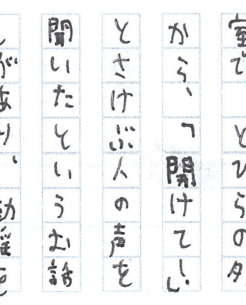 室で とびらの外
から、「開けて!」
とさけぶ人の声を
聞いたというお話
しがあり、動揺を